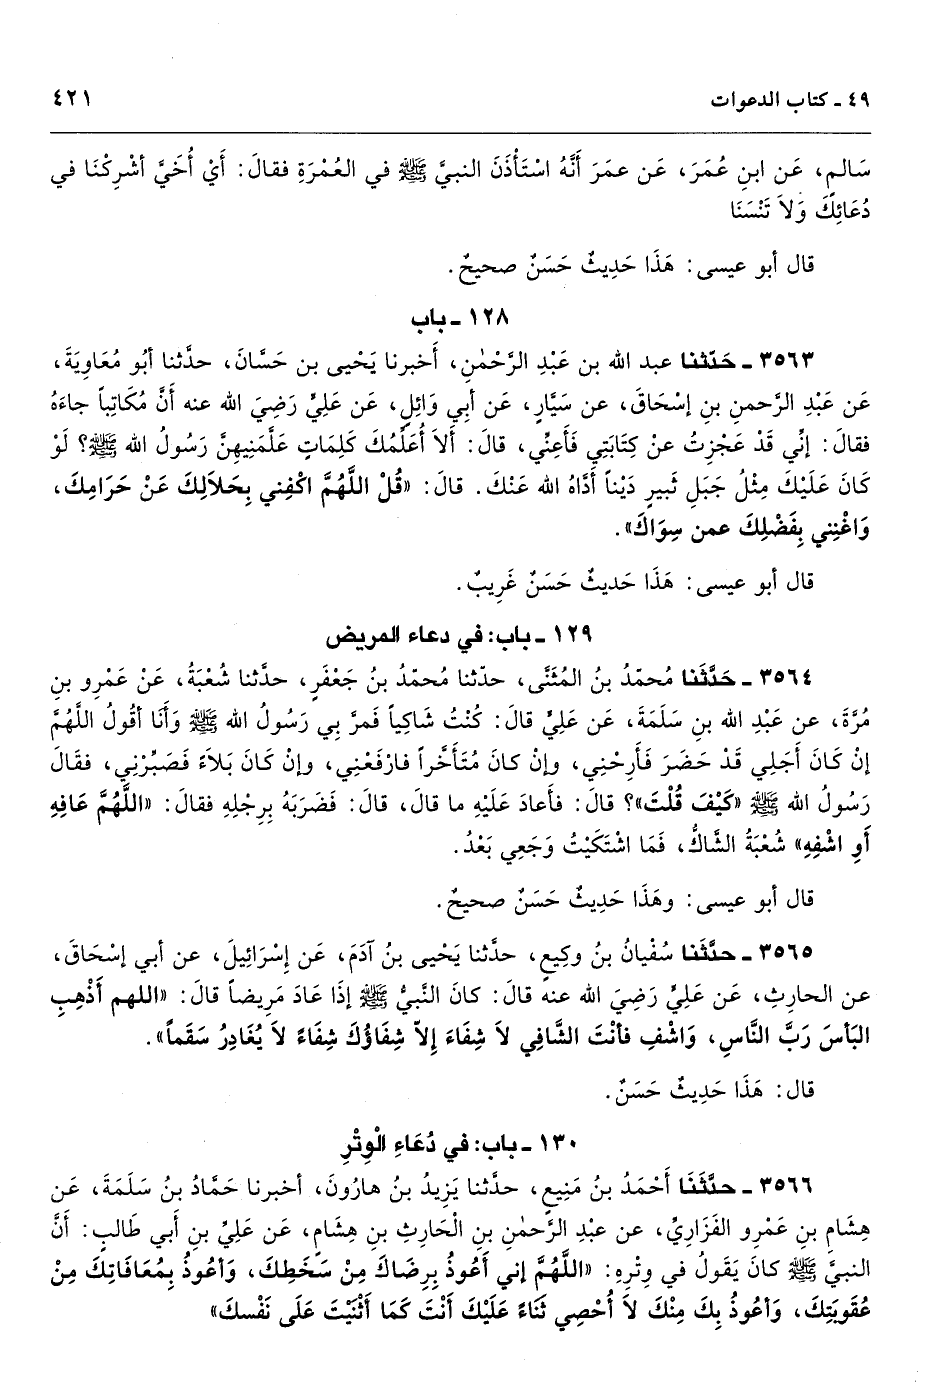 ٤٩ - كتاب الدعوات ٤٢١
سَالمٍ، عَن ابنِ عُمَرَ، عَن عمَرَ أَنَّهُ اسْتَأْذَنَ النبيَّ ﷺ في العُمْرَةِ فقالَ: أَيْ أُخَيَّ أشْرِكْنَا في
دُعَائِكَ وَلاَ تَنْسَنَا
قال أبو عيسى: هَذَا حَدِيثٌ حَسَنٌ صحيحٌ.
١٢٨ - باب
٣٥٦٣ - حَدّثنا عبد الله بن عَبْدِ الرَّحْمٰنِ، أخبرنا يَحْيى بن حَسَّانَ، حدَّثنا أبُو مُعَاوِيَةَ،
عَن عَبْدِ الرَّحمنِ بنِ إسْحَاقَ، عن سَيَّارٍ، عَن أبي وَائِلٍ، عَن عَلِيٍّ رَضِيَ الله عنه أَنَّ مُكَاتِباً جاءَهُ
فقالَ: إنِّي قَدْ عَجْزِتُ عنْ كِتَابَتِي فَأَعِنِّي، قالَ: ألاَ أُعَلِّمُكَ كَلِمَاتٍ عَلَّمَنِيهِنَّ رَسُولُ الله ﷺ؟ لَوْ
كَانَ عَلَيْكَ مِثْلُ جَبَلِ ثَبيرٍ دَيْناً أَدَّاهُ الله عَنْكَ. قالَ: «قُلْ اللَّهُمَّ اكْفِني بِحَلاَلِكَ عَنْ حَرَامِكَ،
وَاغْنِنِي بِفَضْلِكَ عمن سِوَاكَ».
قال أبو عيسى: هَذَا حَديثٌ حَسَنٌ غَرِيبٌ.
١٢٩ - باب: في دعاء المريض
٣٥٦٤ - حَدَّثَنا مُحمّدُ بنُ المُثَنَّى، حدّثنا مُحمّدُ بنُ جَعْفَرٍ، حدَّثنا شُعْبَةُ، عَنْ عَمْرِو بنِ
مُرَّةَ، عن عَبْدِ الله بنِ سَلَمَةَ، عَن عَلِيٍّ قالَ: كُنْتُ شَاكِياً فَمرَّ بِي رَسُولُ الله ﷺ وَأَنَا أقُولُ اللَّهُمَّ
إنْ كَانَ أَجَلِي قَدْ حَضَرَ فَأَرِحْنِي، وإنْ كانَ مُتَأَخَّراً فارْفَعْنِي، وإنْ كَانَ بَلاَءً فَصَبِّرْنِي، فقَالَ
رَسُولُ الله ﷺ «كَيْفَ قُلْتَ»؟ قالَ: فأَعادَ عَلَيْهِ ما قالَ، قالَ: فَضَرَبَهُ بِرِجْلِهِ فقالَ: «اللَّهُمَّ عَافِهِ
أَوِ اشْفِهِ» شُعْبَةُ الشَّاكُّ، فَمَا اشْتَكَيْتُ وَجَعِي بَعْدُ.
قال أبو عيسى: وهَذَا حَدِيثٌ حَسَنٌ صحيحٌ.
٣٥٦٥ - حدَّثَنا سُفْيانُ بنُ وكِيعٍ، حدَّثنا يَحْيى بنُ آدَمَ، عَن إسْرَائِيلَ، عن أبي إسْحَاقَ،
عن الحارِثِ، عَن عَلِيٍّ رَضِيَ الله عنه قالَ: كانَ النَّبيُّ ﷺ إذَا عَادَ مَرِيضاً قالَ: «اللهم أَذْهِبِ
البَأسَ رَبَّ النَّاسِ، وَاشْفِ فأنْتَ الشَّافِي لاَ شِفَاءَ إِلاّ شِفَاؤُكَ شِفَاءً لاَ يُغَادِرُ سَقَماً».
قال: هَذَا حَدِيثٌ حَسَنٌ.
١٣٠ - باب: في دُعَاءِ الْوِتْرِ
٣٥٦٦ - حدَّثَنَا أَحْمَدُ بنُ مَنِيعٍ، حدَّثنا يَزِيدُ بنُ هارُونَ، أخبرنا حَمَّادُ بنُ سَلَمَةَ، عَن
هِشَامِ بنِ عَمْرٍو الفَزَارِيِّ، عن عبْدِ الرَّحمٰنِ بنِ الْحَارِثِ بنِ هِشَامٍ، عَن عَلِيِّ بنِ أَبي طَالبٍ: أنَّ
النبيَّ ﷺ كانَ يَقُولُ في وِتْرِهِ: «اللَّهُمَّ إني أَعُوذُ بِرِضَاكَ مِنْ سَخَطِكَ، وَأعُوذُ بِمُعَافَاتِكَ مِنْ
عُقوبَتِكَ، وَأعُوذُ بِكَ مِنْكَ لاَ أُحْصِي ثَنَاءً عَلَيْكَ أَنْتَ كَمَا أَثْنَيْتَ عَلَى نَفْسكَ»